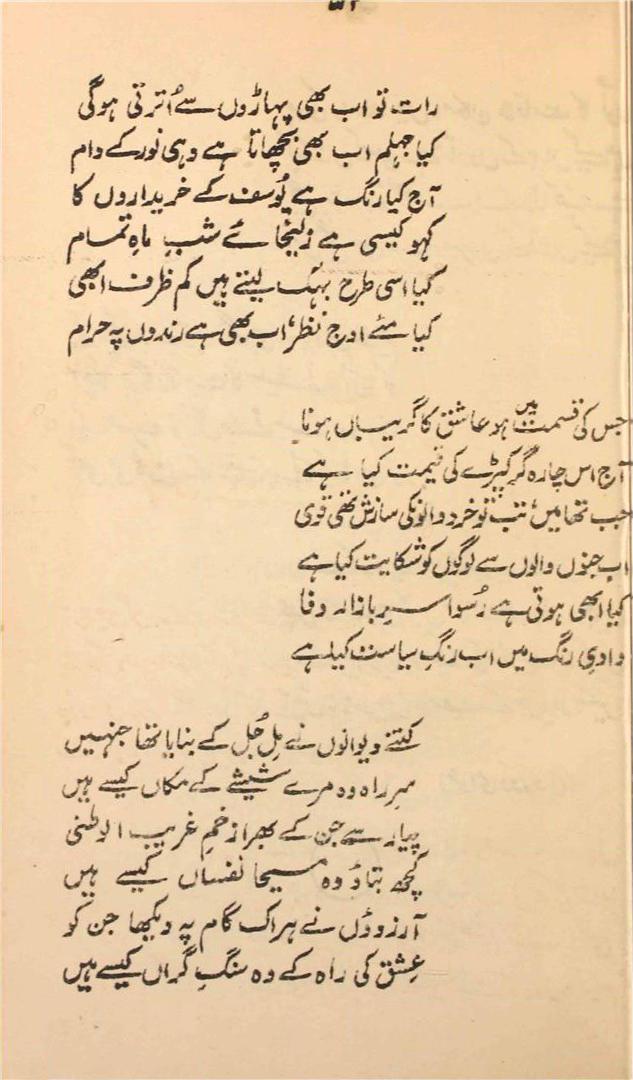 رات تو اب بھی پہاڑوں سے اُترتی ہوگی
کیا جہلم اب بھی بچھاتا ہے وہی نور کے دام
آج کیا رنگ ہے یُوسف کے خریداروں کا
کہو کیسی ہے زلیخائے شبِ ماہِ تمام
کیا اسی طرح بہک لیتے ہیں کم ظرف ابھی
کیا مئے اوج نظر، اب بھی ہے رندوں پہ حرام
جس کی قسمت میں ہو عاشق کا گریباں ہونا
آج اس چارہ گر کپڑے کی قیمت کیا ہے
جب تھا میں، تب تو خرد والوں کی سازش تھی قوی
اب جنوں والوں سے لوگوں کو شکایت کیا ہے
کیا ابھی ہوتی ہے رُسوا سرِ بازار وفا
وادیِ رنگ میں اب رنگِ سیاست کیا ہے
کتنے دیوانوں نے مِل جُل کے بنایا تھا جنہیں
سرِ راہ وہ مرے شیشے کے مکاں کیسے ہیں
پیار سے جن کے بھرا زخمِ غریب الوطنی
کچھ بتاؤ وہ مسیحا نفساں کیسے ہیں
آرزوؤں نے ہر اک گام پہ دیکھا جن کو
عِشق کی راہ کے وہ سنگِ گراں کیسے ہیں